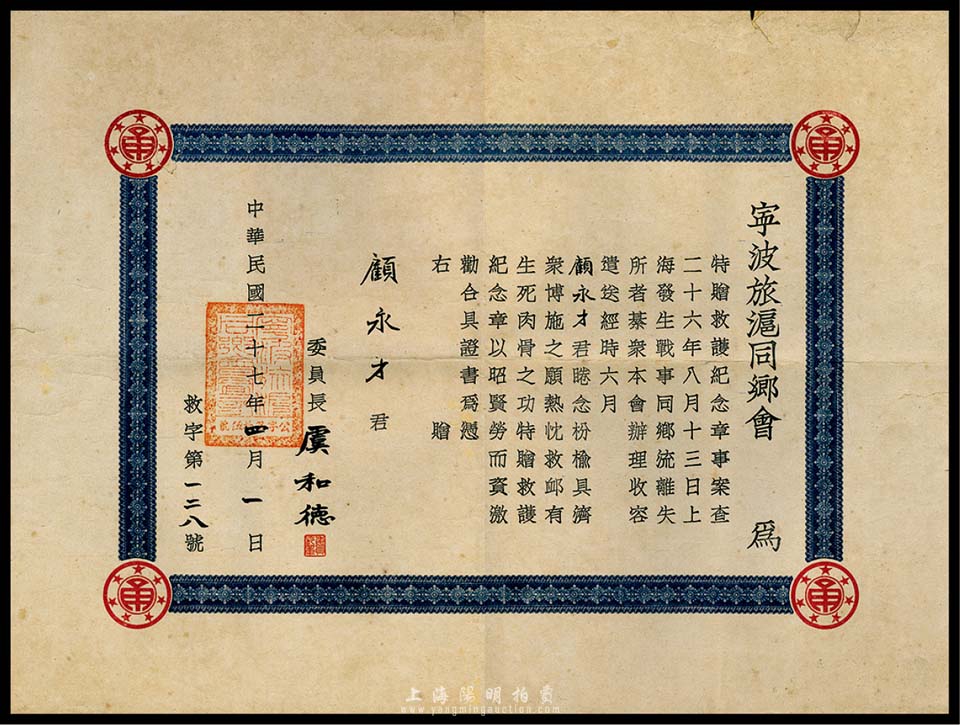 寧波旅滬同鄉會　為
特贈救護紀念章事案查
二十六年八月十三日上
海發生戰事同鄉流離失
所者綦衆本會辦理收容
遣送經時六月
顧永才君睠念枌榆具濟
衆博施之願熱忱救邮有
生死肉骨之功特贈救護
紀念章以昭賢勞而資激
勸合具證書爲憑
右　　　　贈
顧永才　君
委員長　虞和德
中華民國二十七年四月一日
救字第一二八號
甬
甬
甬
甬
上海陽明拍賣
www.yangmingauction.com